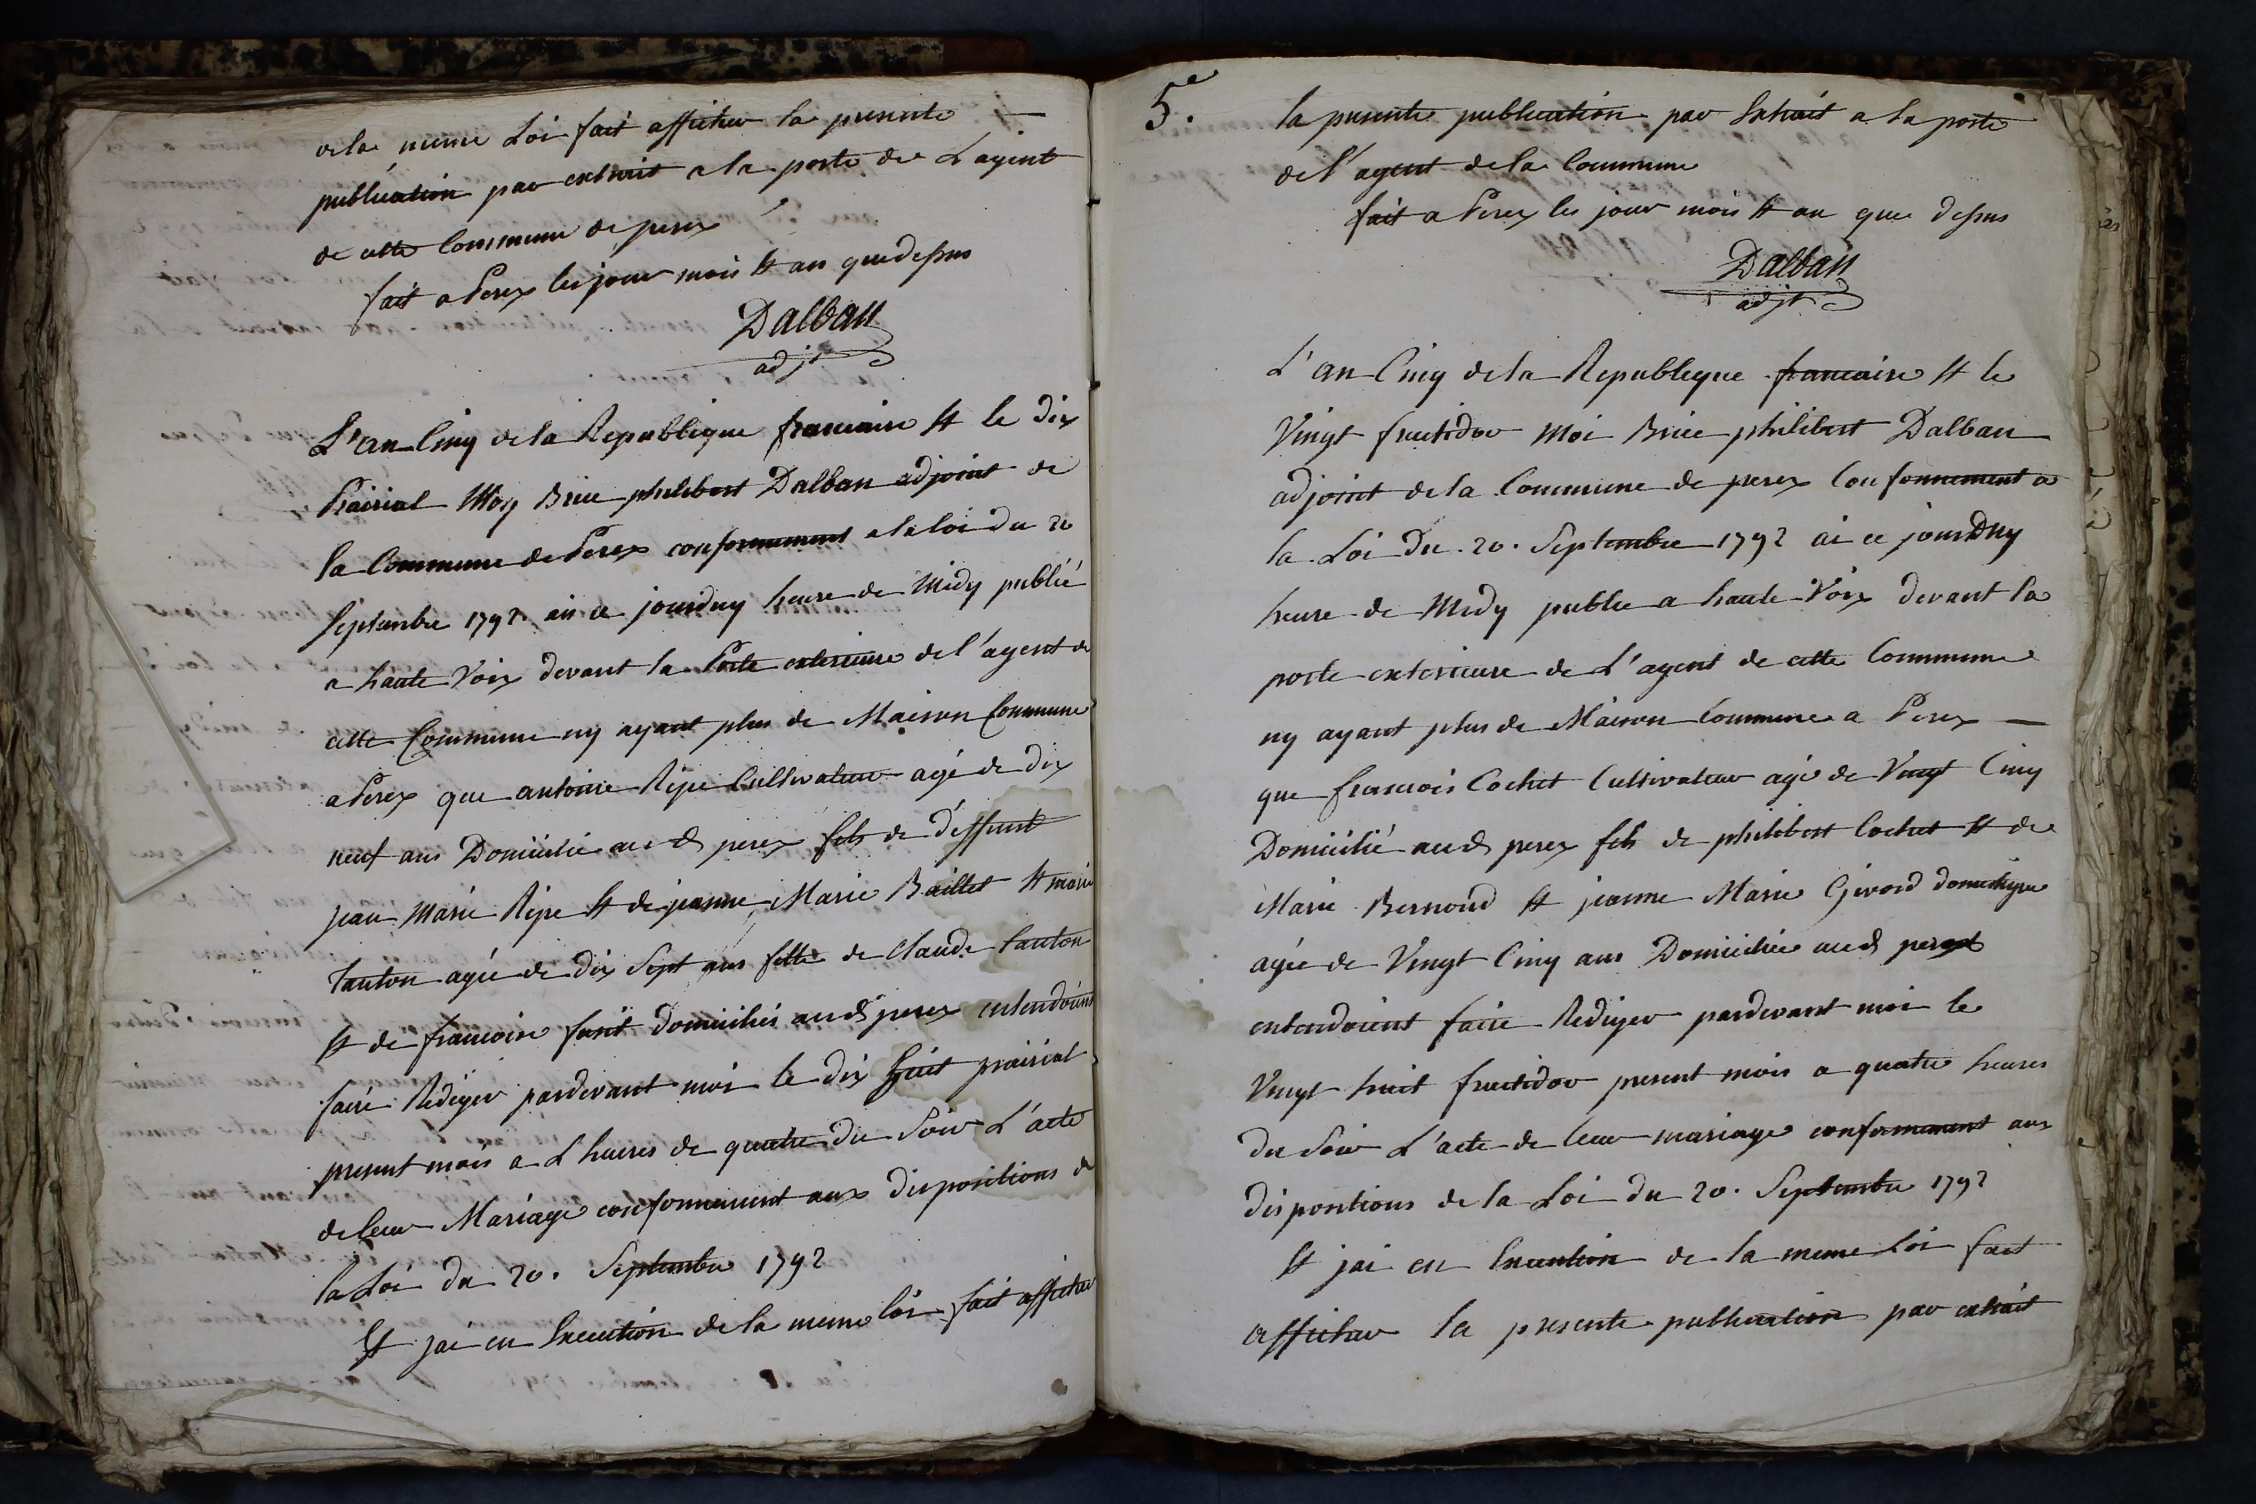 de la meme Loi fait afficher la presente
publication par extrait a la porte de L'agent
de cette Commune de perex
fait a Perex les jour mois Et an que dessus
Dalban
adjt
L'an Cinq de la Republique francaise Et le Dix
Prairial Moy Brice philibert Dalban adjoint de
la Commune de Perex conformement a la loi du 20
Septembre 1792 ai ce jourduy heure de Midy publié
a haute Voix devant la Porte exterieure de l'agent de
cette Commune ny ayant plus de Maison Commune
a Perex que antoine Ripe Cultivateur agé de dix
neuf ans Domicilié aud perex fils de deffunt
jean Marie Ripe Et de jeanne Marie Baillet Et marie
tanton agée de dix Sept ans fille de Claude tanton
Et de francoise domiciliés aud perex entendoient
faire Rediger pardevant moi le dix huit prairial
present mois a L heures de quatre du Soir L'acte
de leur Mariage conformement aux dispositions de
la Loi du 20. Septembre 1792
Et jai en Execution de la meme loi fait afficher
5e.
la presente publication par Extrait a la porte
de l'agent de la Commune
fait a Perex les jour mois Et an que dessus
Dalban
adjt
L'an Cinq de la Republique francaise Et le
Vingt fructidor Moi Brice philibert Dalban
adjoint de la Commune de perex Conformement a
la Loi Du 20. Septembre 1792 ai ce jourduy
heure de Midy publie a haute Voix devant la
porte exterieure de L'agent de cette Commune
ny ayant plus de Maison Commune a Perex
que francois Cochet Cultivateur agé de Vingt Cinq
Domicilié aud perex fils de philibert Cochet Et de
Marie Bernoud Et jeanne Marie Givord domestique
agée de Vingt Cinq ans Domiciliée aud perex
entendoient faire Rediger pardevant moi le
Vingt huit fructidor present mois a quatre heures
du Soir L'acte de leur mariage conformement aux
dispositions de la Loi du 20. Septembre 1792
Et jai en Execution de la meme Loi fait
afficher la presente publication par extrait